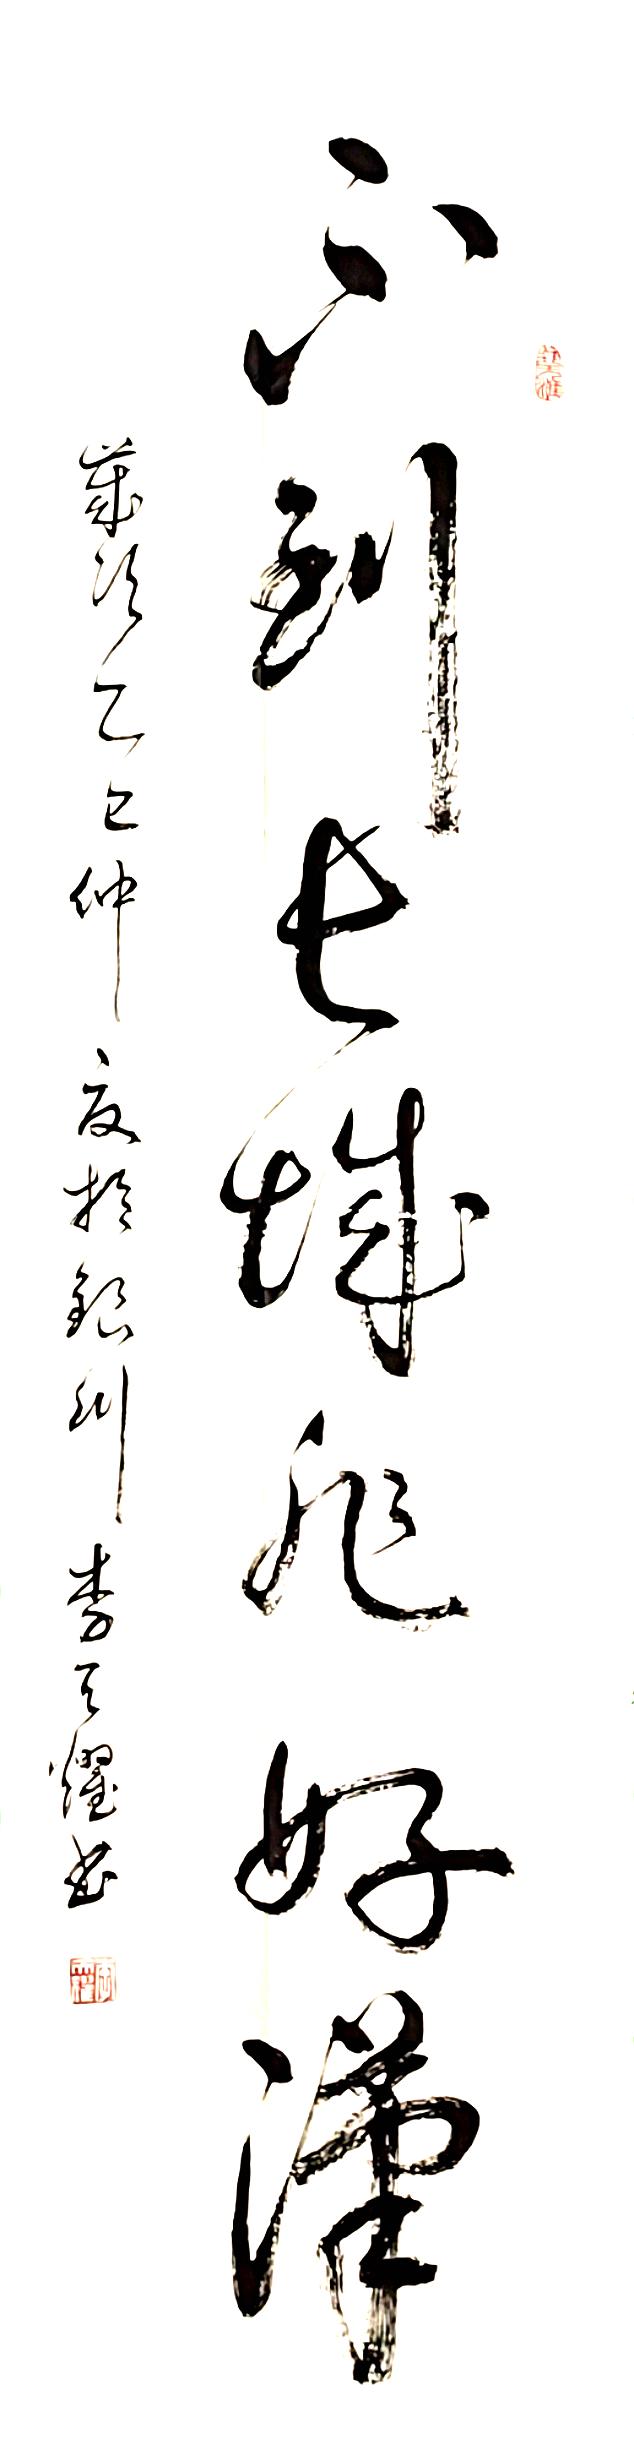 不到长城非好漢
歲次乙巳仲夏於銀川李天耀书